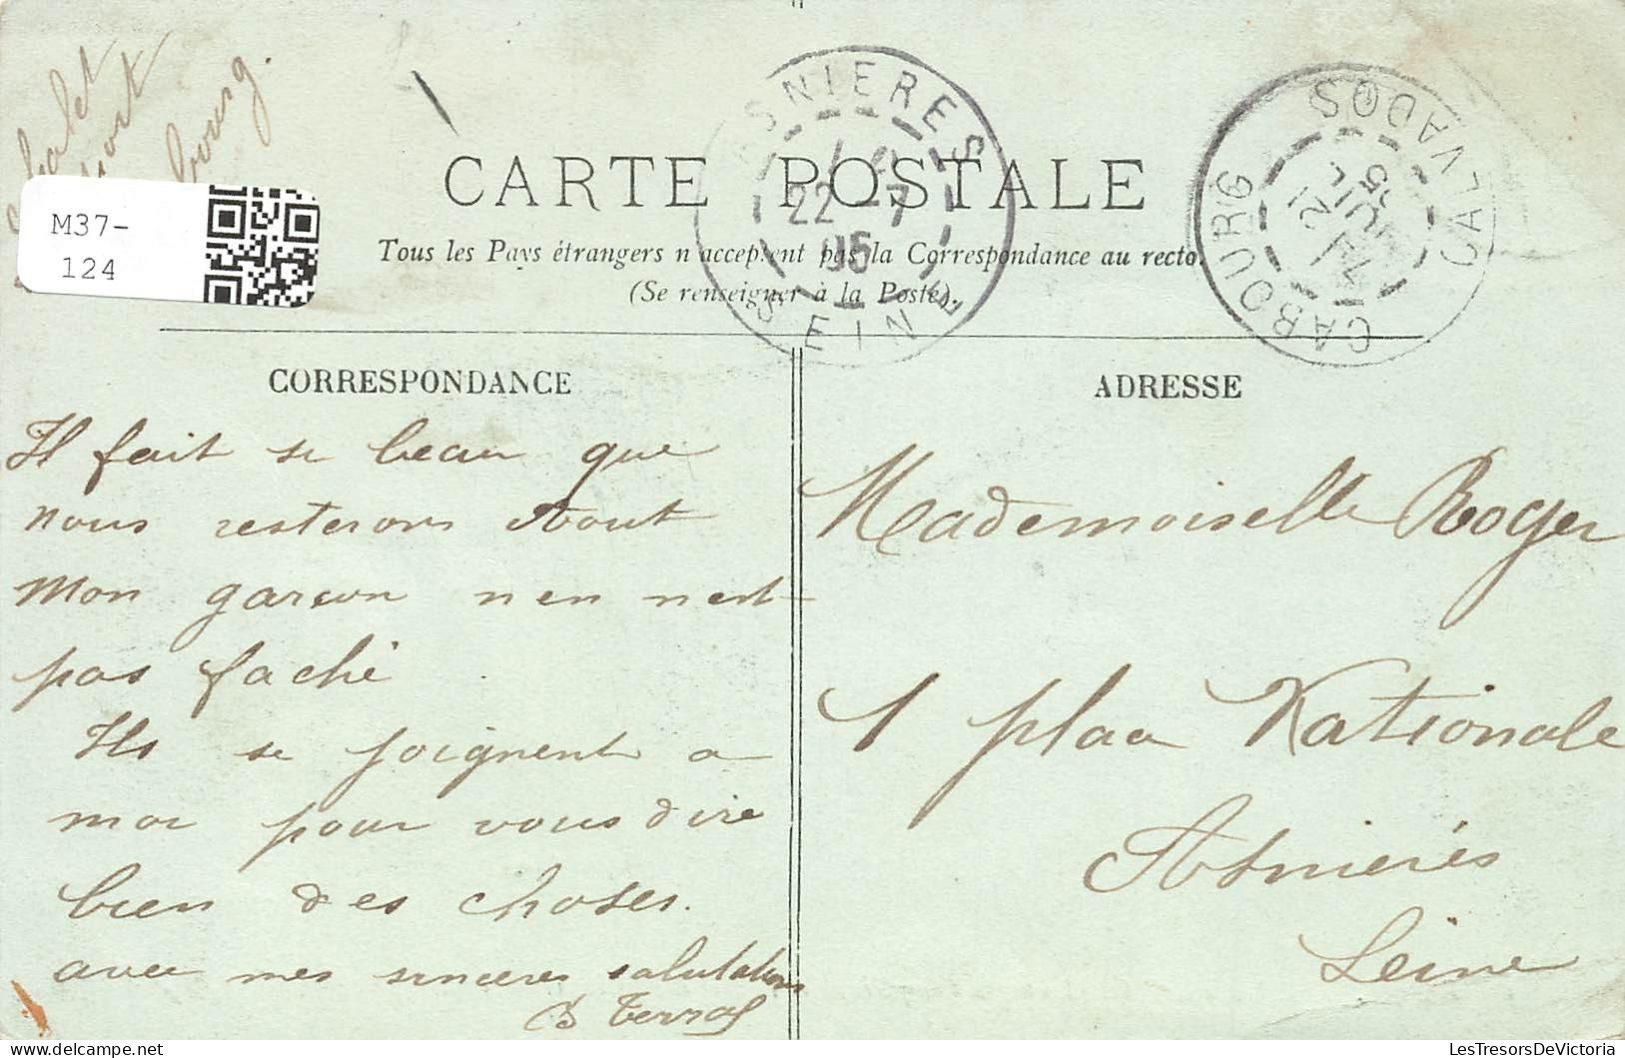 CARTE POSTALE
Tous les Pays étrangers n'acceptent pas la Correspondance au recto.
(Se renseigner à la Poste).
SNIERES
22 7
05
SEINE
CABOURG
CALVADOS
21
JUIL
05
M37-
124
CORRESPONDANCE
Il fait si beau que
nous resterons Aout
Mon garçon n en n est
pas faché
Ils se joignent a
moi pour vous dire
bien des choses.
avec mes sinceres salutations
ADRESSE
Mademoiselle Roger
1 place Nationale
Asnierés
Seine
LesTresorsDeVictoria